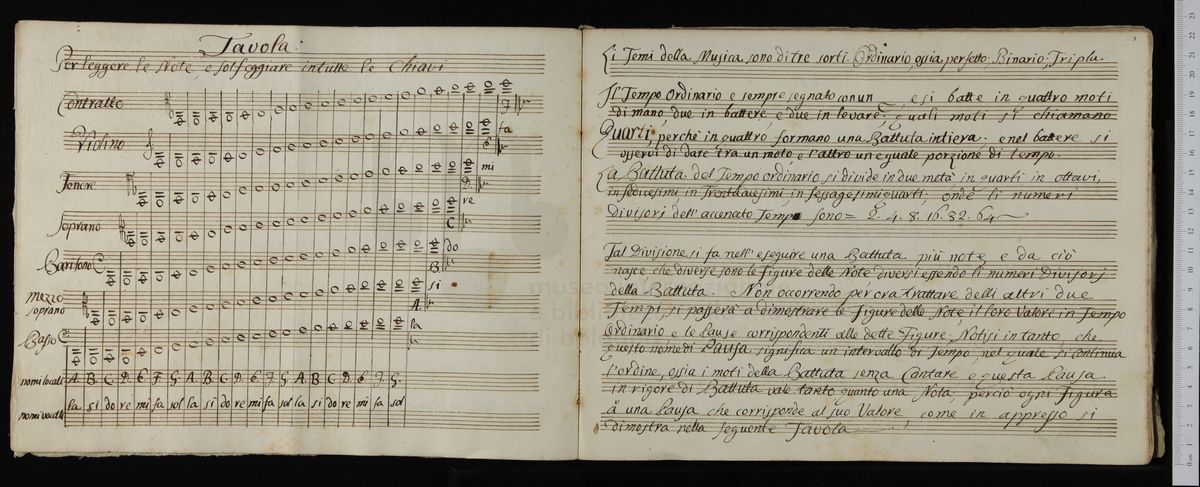 Tavola.
Per leggere le Note, e solfeggiare in tutte le Chiavi
Contralto
G
Violino
fa
Tenore
mi
D
re
Soprano
C
Baritono
do
B
si
Mezzo
Soprano
A
la
Basso
nomi locali A. B. C. D. E. F. G. A. B. C. D. E. F. G. A. B. C. D. E. F. G.
nomi vocali la si do re mi fa sol la si do re mi fa sol la si do re mi fa sol
Li Temi della Musica sono di tre sorti. Ordinario, ossia perfetto; Binario; Tripla.
Il Tempo Ordinario e sempre segnato con un , e si batte in quattro moti
di mano, due in battere e due in levare; quali moti si chiamano
Quarti, perchè in quattro formano una Battuta intiera. e nel battere si
osservi di dare tra un moto e l'altro un eguale porzione di tempo.
La Battuta del Tempo ordinario si divide in due metà in quarti in ottavi,
in sedicesimi in Trentaduesimi, in sessagesimiquarti; onde li numeri
Divisorj dell'accenato Tempo sono = 2. 4. 8. 16. 32. 64
Tal Divisione si fa nell'eseguire una Battuta più note e da ciò
nasce che diverse sono le Figure delle Note diversi essendo li numeri Divisorj
della Battuta. Non occorrendo per ora trattare delli altri due
Tempi, si passerà a dimostrare le Figure delle Note, il loro Valore in Tempo
Ordinario e le Pause corrispondenti alle dette Figure, Notisi in tanto, che
questo nome di Pausa significa un intervallo di Tempo, nel quale si continua
l'ordine, ossia i moti della Battuta senza Cantare e questa Pausa
in rigore di Battuta vale tanto quanto una Nota, perciò ogni Figura
à una Pausa che corrisponde al suo Valore, come in appresso si
dimostra nella seguente Tavola